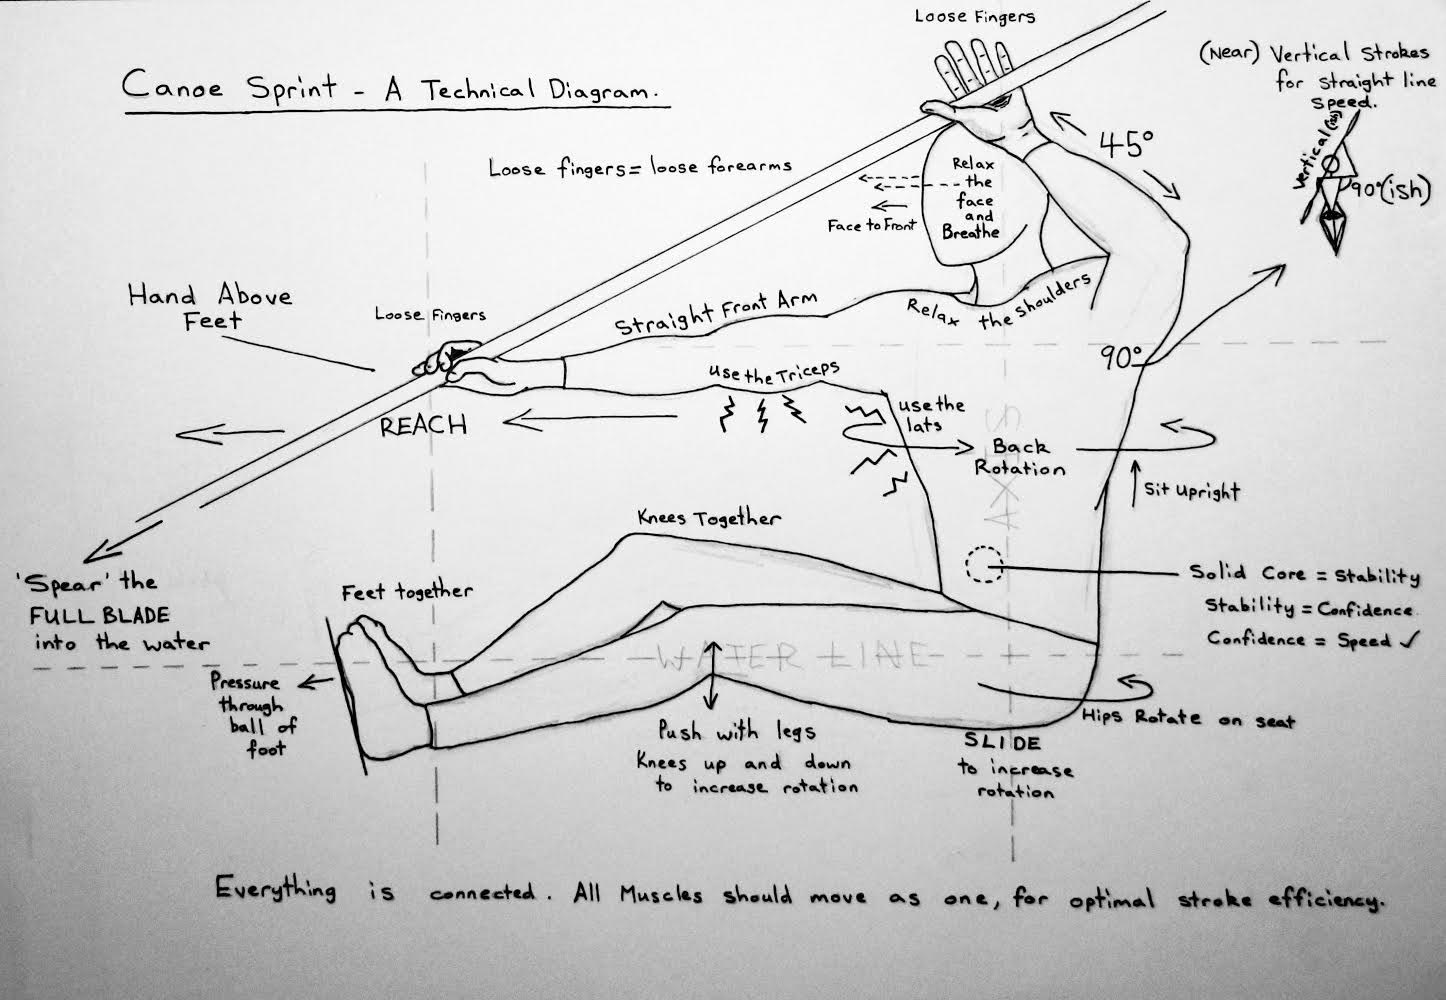 Loose Fingers
Canoe Sprint - A Technical Diagram.
(Near) Vertical Strokes
for straight line
speed.
Vertical(ish)
90°(ish)
45°
Loose fingers = loose forearms
Relax
the
face
and
Breathe
Face to Front
Hand Above
Feet
Loose Fingers
Straight Front Arm
Relax the shoulders
90°
use the Triceps
REACH
use the
lats
Back
Rotation
AXIS
Sit upright
Knees Together
'Spear' the
FULL BLADE
into the water
Feet together
Solid Core = Stability
Stability = Confidence
Confidence = Speed ✓
WATER LINE
Pressure
through
ball of
foot
Hips Rotate on seat
Push with legs
Knees up and down
to increase rotation
SLIDE
to increase
rotation
Everything is connected. All Muscles should move as one, for optimal stroke efficiency.